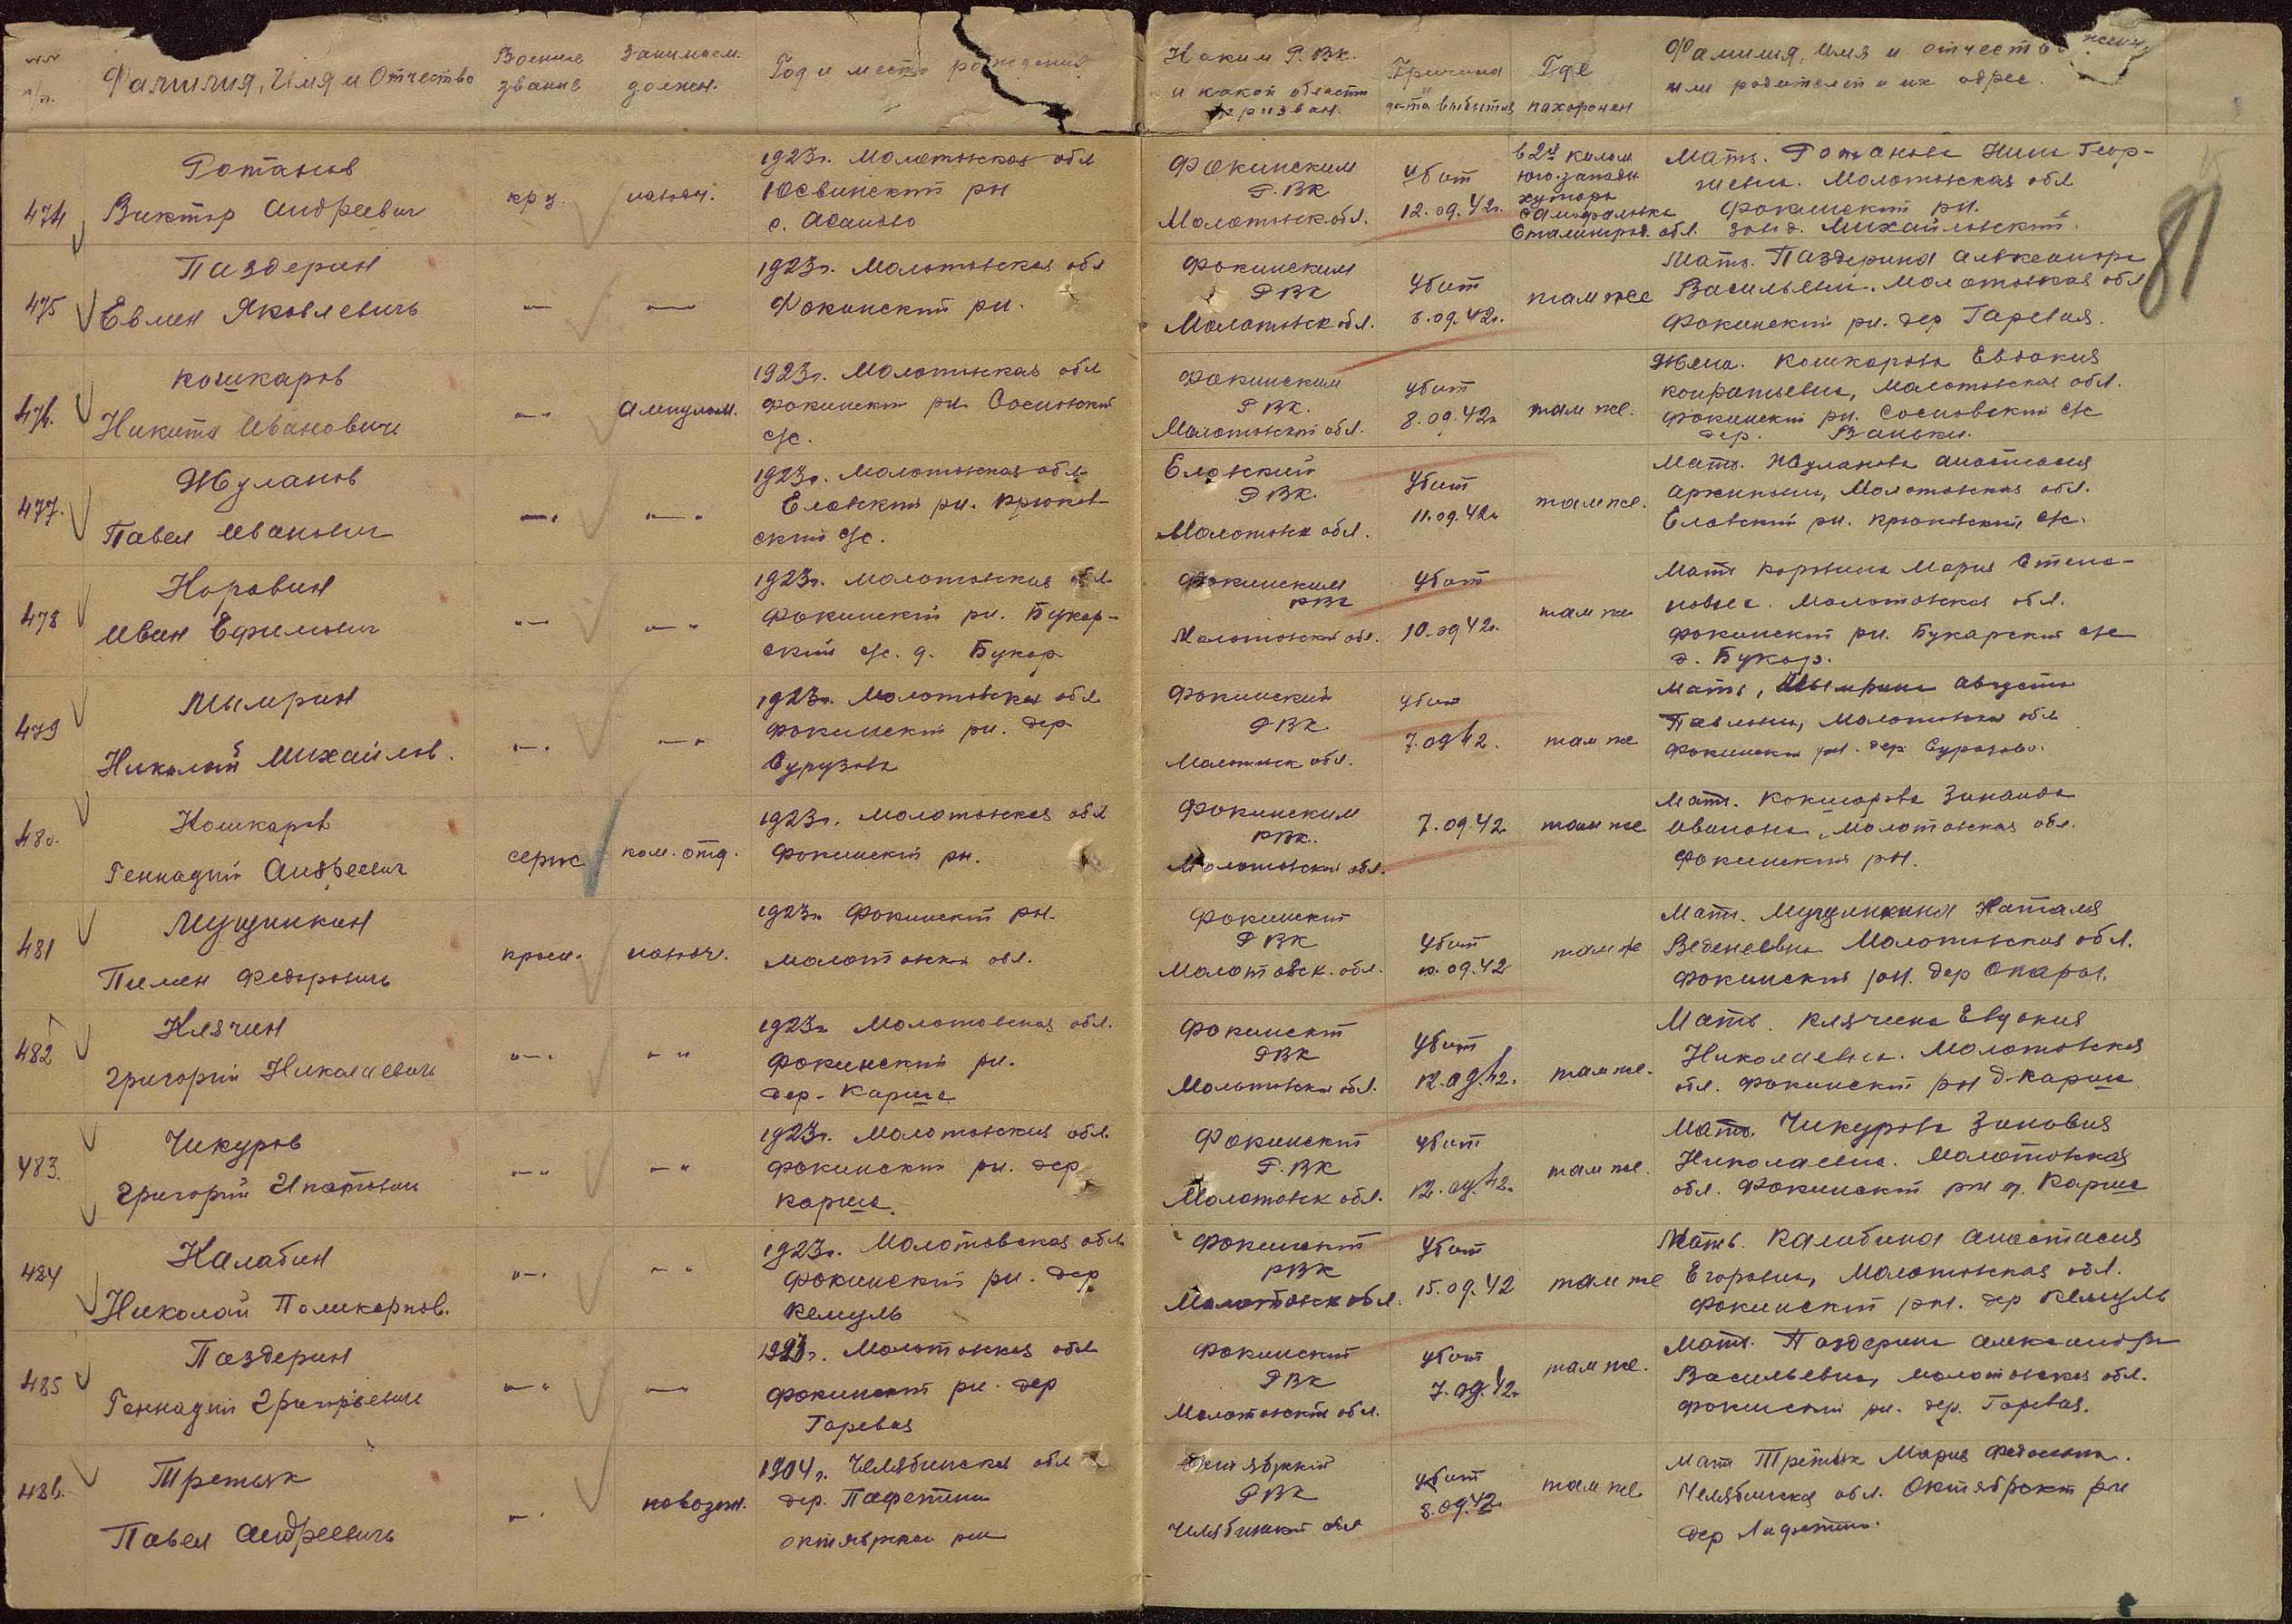 №№ п/п. Фамилия, Имя и Отчество Военное звание Занимаем. должн. Год и место рождения Каким Р.ВК. и какой области призван. Причина дата выбытия Где похоронен Фамилия, имя и отчество жены или родителей и их адрес.
81
474 Ротанов Виктор Андреевич кр-ц. наводч.
1923г. Молотовская обл
Юсвинский рн
с. Асаново
Фокинским
Р.ВК
Молотовск обл.
Убит
12.09.42г.
в 24 килом
юго-западн
хутора
Сталинград. обл.
Мать. Ротанова Нина Геор-
гиевна. Молотовская обл
Фокинский рн.
завд. Михайловский.
475 Паздерин Евмен Яковлевичь -"- -"-
1923г. Молотовская обл
Фокинский рн.
Фокинским
РВК
Молотовск обл.
Убит
6.09.42г.
там же
Мать. Паздерина Александра
Васильевна. Молотовская обл
Фокинский рн. дер Гаревая.
476. Кошкаров Никита Иванович -"- Ампулом.
1923г. Молотовская обл
Фокинский рн Сосновский
с/с.
Фокинским
РВК.
Молотовской обл.
Убит
8.09.42г
там же.
Жена. Кошкарова Евдокия
Кондратьевна, Молотовская обл.
Фокинский рн. Сосновский с/с
дер. Ваньки.
477. Жуланов Павел Иванович -"- -"-
1923г. Молотовская обл.
Еловский рн. Крюков-
ский с/с.
Еловский
РВК.
Молотовск обл.
Убит
11.09.42г
там же.
Мать. Жуланова Анастасия
Архиповна, Молотовская обл.
Еловский рн. Крюковский с/с.
478 Коровин Иван Ефимович -"- -"-
1923г. Молотовская обл.
Фокинский рн. Букор-
ский с/с. д. Букор
Фокинским
РВК
Молотовской обл.
Убит
10.09.42г.
там же
Мать Коровина Мария Степа-
новна. Молотовская обл.
Фокинский рн. Букарский с/с
д. Букор.
479 Мымрин Николай Михайлов. -"- -"-
1923г. Молотовская обл
Фокинский рн. дер
Сурузова
Фокинский
РВК.
Молотовск обл.
Убит
7.09.42.
там же
Мать, Мымрина Августа
Павловна, Молотовская обл
Фокинский рн. дер
480. Кошкаров Геннадий Андреевич серж ком. отд.
1923г. Молотовская обл
Фокинский рн.
Фокинским
РВК.
Молотовской обл.
7.09.42
там же
Мать. Кокшарова Зинаида
Ивановна, Молотовская обл.
Фокинский рн.
481 Мущинкин Пимен Федорович красн. наводч.
1923г. Фокинский рн.
Молотовская обл.
Фокинский
РВК
Молотовск. обл.
Убит
10.09.42
там же
Мать. Мущинкина Наталя
Веденеевна Молотовская обл.
Фокинский рн. дер Опары.
482 Клячин Григорий Николаевичь -"- -"-
1923г Молотовская обл.
Фокинский рн.
дер. Карша
Фокинский
РВК
Молотовской обл.
Убит
12.09.42.
там же.
Мать. Клячина Евдокия
Николаевна. Молотовская
обл. Фокинский рн д. Карша
483. Чикуров Григорий Ипатович -"- -"-
1923г. Молотовская обл.
Фокинский рн. дер
Карша.
Фокинский
Р.ВК
Молотовск обл.
Убит
12.09.42.
там же.
Мать. Чикурова Зиновия
Николаевна. Молотовская
обл. Фокинский рн д. Карша
484 Калабин Николай Поликарпов. -"- -"-
1923г. Молотовская обл
Фокинский рн. дер
Кемуль
Фокинский
РВК
Молотовск обл.
Убит
15.09.42
там же
Мать. Калабина Анастасия
Егоровна, Молотовская обл.
Фокинский рн. дер Кемуль
485 Паздерин Геннадий Григорьевич -"- -"-
1923г. Молотовская обл
Фокинский рн. дер
Гаревая
Фокинский
РВК
Молотовской обл.
Убит
7.09.42г
там же.
Мать. Паздерина Александра
Васильевна, Молотовская обл.
Фокинский рн. дер. Гаревая.
486. Третьяк Павел Андреевичь -"- повозоч.
1904г. Челябинская обл
дер.
Октябрский рн
Октябрский
РВК
Челябинской обл
Убит
8.09.42
там же
Мать Третьяк Мария Федосеевна.
Челябинская обл. Октябрский рн
дер